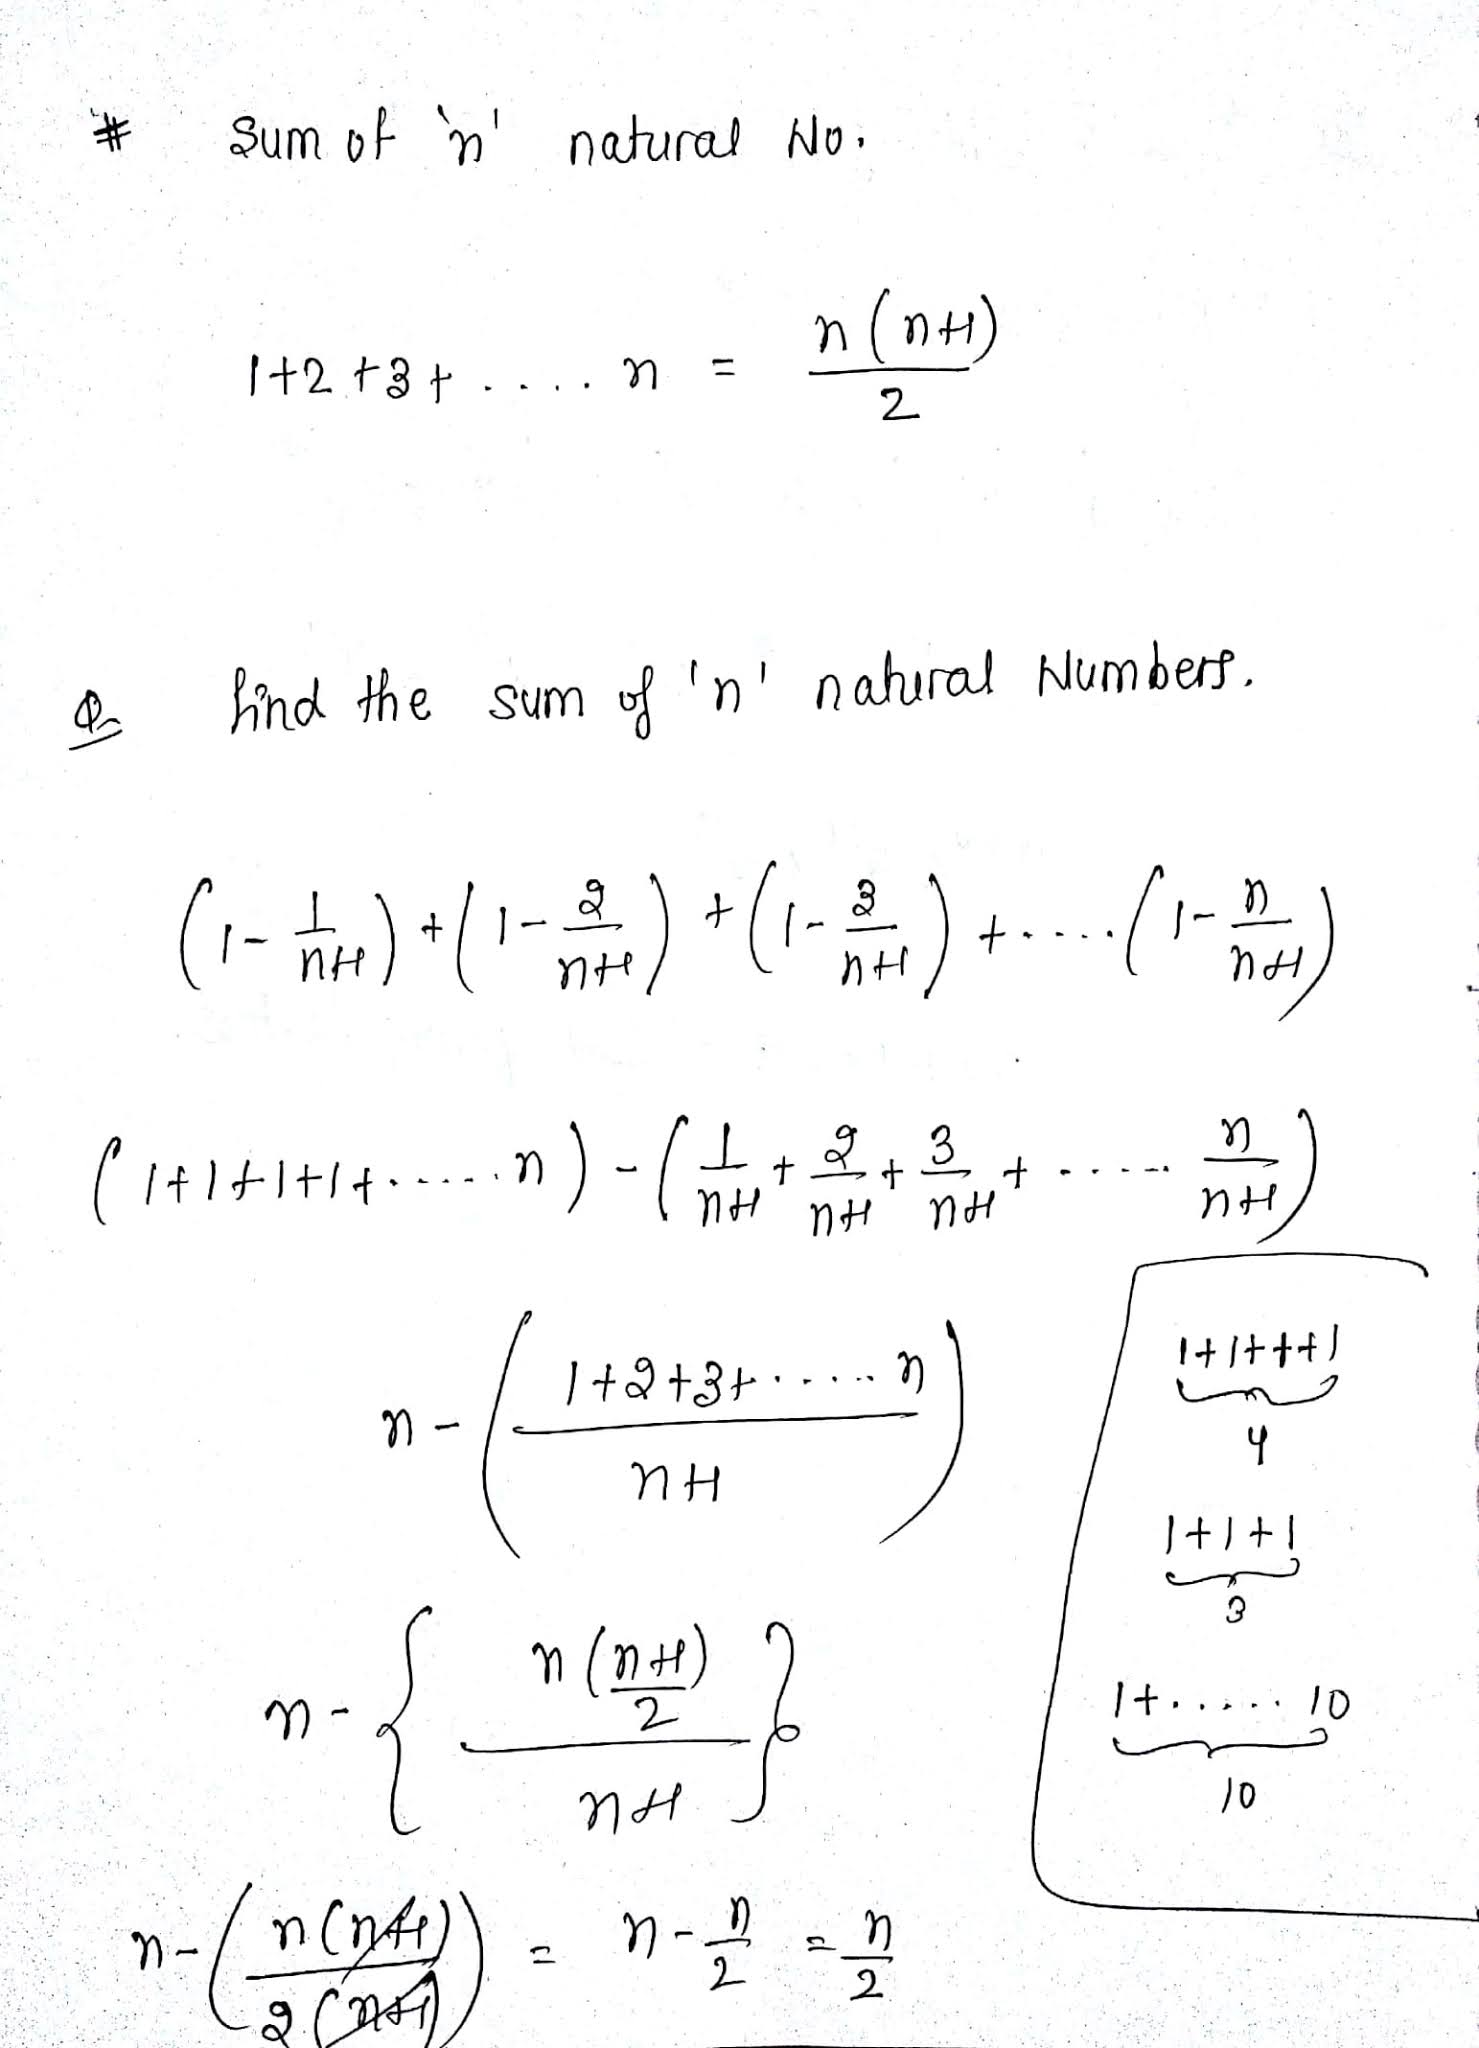 # Sum of 'n' natural No.
1+2+3+.....n = n(n+1)/2
Q find the sum of 'n' natural Numbers.
(1-1/n+1)+(1-2/n+1)+(1-3/n+1)+.....(1-n/n+1)
(1+1+1+1+......n)-(1/n+1+2/n+1+3/n+1+......n/n+1)
n-(1+2+3+......n/n+1)
1+1+++1
4
1+1+1
3
n-{n(n+1)/2/n+1}
1+.....10
10
n-(n(n+1)/2(n+1)) = n-n/2 = n/2